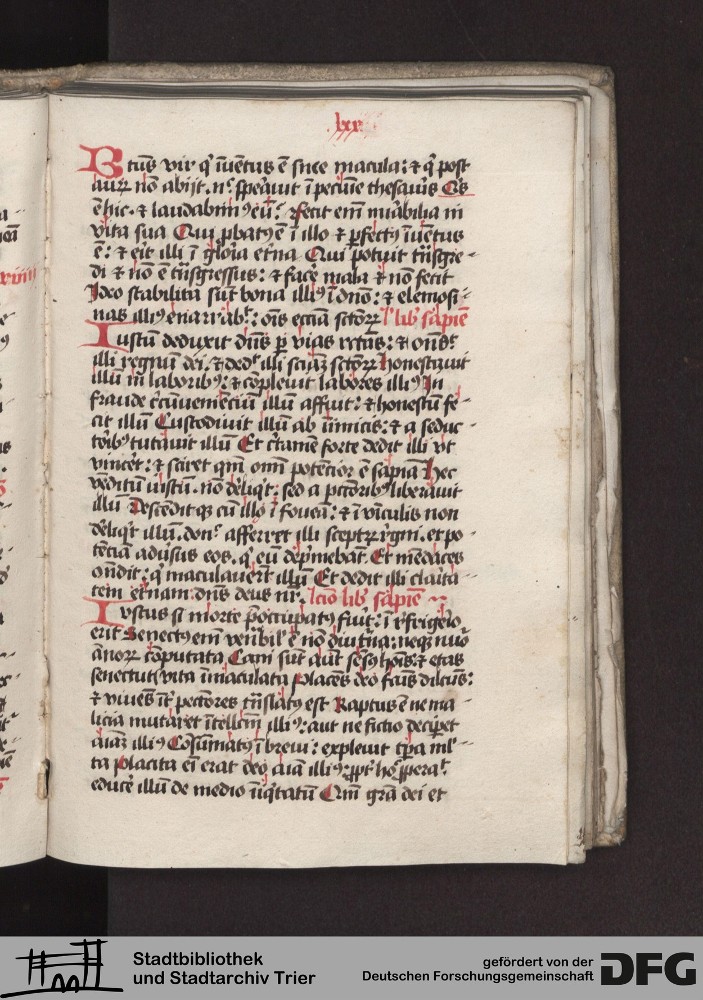 lxx
Btus vir q iuentus e sine macula: & q post
aur no abijt. n sperauit i pecunie thesauris Qis
e hic. & laudabim9 eu: fecit em mirabilia in
vita sua Qui pbat9 e i illo & pfect9 iuentus
e: & erit illi i gloria etna Qui potuit trisgre-
di & no e trisgressus: & face mala & no fecit
Ideo stabilita sut bona illi9 i dno: & elemosi-
nas illi9 enarrab: ois eccia sctor l lib sapie
Iustu deduxit dus p vias rctas: & ond
illi regnum dei. & ded illi scia sctor honestauit
illu in laborib9: & copleuit labores illi9 In
fraude circuueniecium illu affuit: & honestu fe-
cit illu Custodiuit illu ab inimicis: & a seduc-
torib9 tutauit illu Et ctame forte dedit illi vt
vincet: & sciret qm oim potecior e sapia Hec
veditu iustu. no deliqt: sed a pctorib9 liberauit
illu Descedit qz cu illo i fouea: & i viculis non
deliqt illu. don afferret illi sceptr rgni. et po
tecia adusus eos. q eu depmebat. Et medaces
ondit: q maculauert illu Et dedit illi clarita-
tem etnam dns deus nr. lcio lib sapie
Iustus si morte poccupat9 fuit: i rfrigerio
erit Senect9 em venbil e no diutna: neqz nuo
annor coputata Cani sut aut sesq hois: & etas
senectut vita imaculata Placens deo fcus dilcus:
& viues it pectores trislat9 est Raptus e ne ma-
licia mutaret itellcm illi9: aut ne fictio decipet
aia illi9 Cosumat9 i breui: expleuit tpa ml-
ta Placita ei erat deo aia illi9: ppt hoc ppera
educe illu de medio iiqtatu Qm gra dei et
Stadtbibliothek
und Stadtarchiv Trier
gefördert von der
Deutschen Forschungsgemeinschaft
DFG